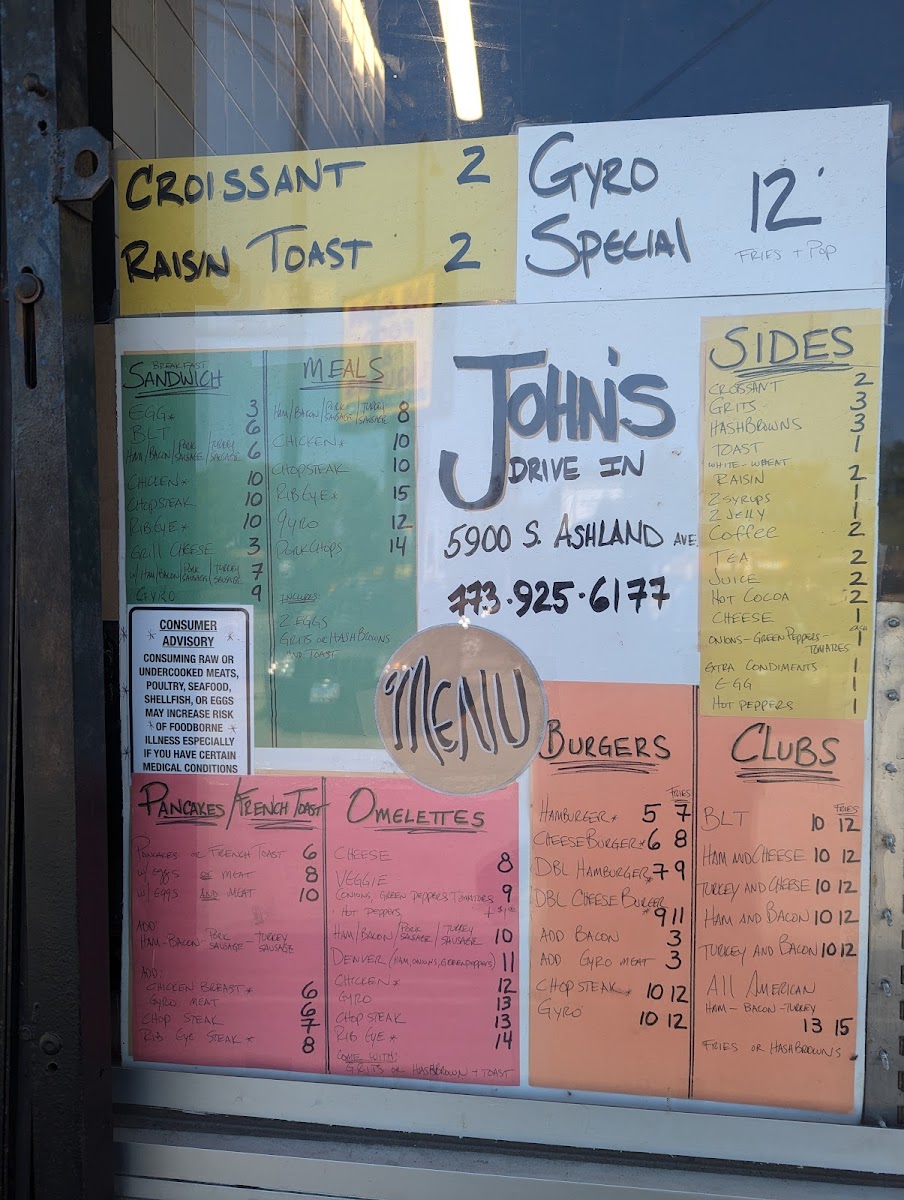 CROISSANT 2
RAISIN TOAST 2
GYRO
SPECIAL 12
FRIES + POP
BREAKFAST
SANDWICH
EGG* 3
BLT 6
HAM/BACON/PORK SAUSAGE/TURKEY SAUSAGE 6
CHICKEN* 10
CHOPSTEAK 10
RIBEYE* 10
GRILL CHEESE 3
W/HAM/BACON/PORK SAUSAGE/TURKEY SAUSAGE 7
GYRO 9
MEALS
HAM/BACON/PORK SAUSAGE/TURKEY SAUSAGE 8
CHICKEN* 10
CHOPSTEAK 10
RIBEYE* 15
GYRO 12
PORKCHOPS 14
INCLUDES:
2 EGGS
GRITS OR HASHBROWNS
AND TOAST
JOHN'S
DRIVE IN
5900 S. ASHLAND AVE.
773.925.6177
MENU
SIDES
CROISSANT 2
GRITS 3
HASHBROWNS 3
TOAST 1
WHITE-WHEAT
RAISIN 2
2 SYRUPS 1
2 JELLY 1
COFFEE 2
TEA 2
JUICE 2
HOT COCOA 2
CHEESE 1
ONIONS-GREEN PEPPERS-
TOMATOES
EXTRA CONDIMENTS 1
EGG 1
HOT PEPPERS 1
CONSUMER
ADVISORY
CONSUMING RAW OR
UNDERCOOKED MEATS,
POULTRY, SEAFOOD,
SHELLFISH, OR EGGS
MAY INCREASE RISK
* OF FOODBORNE *
ILLNESS ESPECIALLY
IF YOU HAVE CERTAIN
MEDICAL CONDITIONS
PANCAKES/FRENCH TOAST
PANCAKES OR FRENCH TOAST 6
W/ EGGS OR MEAT 8
W/ EGGS AND MEAT 10
ADD:
HAM-BACON-PORK SAUSAGE-TURKEY SAUSAGE
ADD:
CHICKEN BREAST* 6
GYRO MEAT 6
CHOP STEAK 7
RIB EYE STEAK* 8
OMELETTES
CHEESE 8
VEGGIE
(ONIONS, GREEN PEPPERS TOMATOES 9
HOT PEPPERS
HAM/BACON/PORK SAUSAGE/TURKEY SAUSAGE 10
DENVER (HAM, ONIONS, GREEN PEPPERS) 11
CHICKEN* 12
GYRO 13
CHOP STEAK 13
RIB EYE* 14
COME WITH:
GRITS OR HASHBROWN + TOAST
BURGERS
FRIES
HAMBURGER* 5 7
CHEESEBURGER* 6 8
DBL HAMBURGER* 7 9
DBL CHEESE BURGER
* 9 11
ADD BACON 3
ADD GYRO MEAT 3
CHOP STEAK* 10 12
GYRO 10 12
CLUBS
FRIES
BLT 10 12
HAM AND CHEESE 10 12
TURKEY AND CHEESE 10 12
HAM AND BACON 10 12
TURKEY AND BACON 10 12
ALL AMERICAN
HAM-BACON-TURKEY
13 15
FRIES OR HASHBROWNS